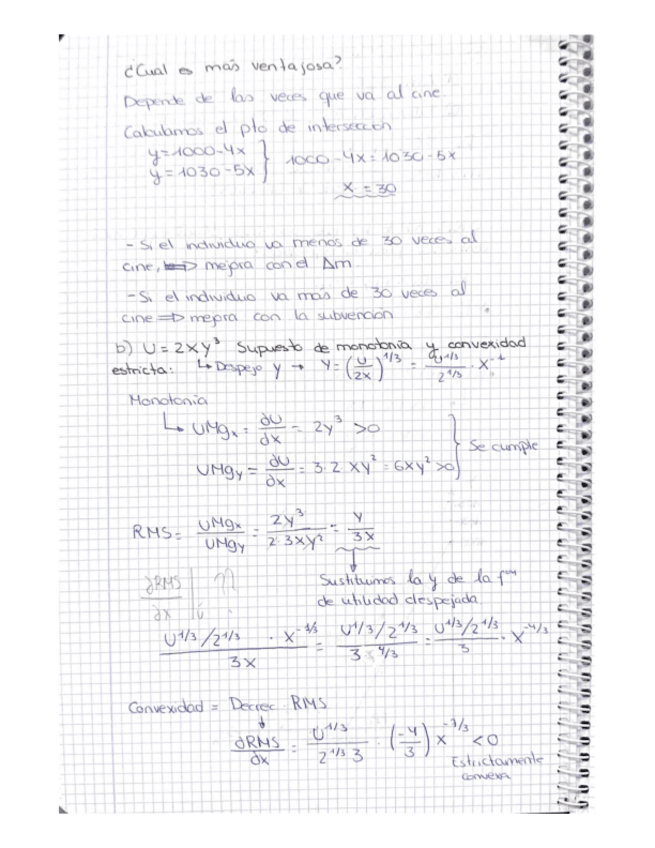 ¿Cual es más ventajosa?
Depende de las veces que va al cine.
Calculamos el pto de intersección
y = 1000 - 4x } 1000 - 4x = 1030 - 5x
y = 1030 - 5x
x = 30
- Si el individuo va menos de 30 veces al
cine, => mejora con el Δm
- Si el individuo va más de 30 veces al
cine => mejora con la subvención
b) U = 2xy³ Supuesto de monotonia y convexidad
estricta: ↳ Despejo y → Y = (U/2x)^1/3 = U^1/3 / 2^1/3 · x
Monotonía
↳ UMgx = dU/dx = 2y³ > 0
UMgy = dU/dx = 3·2 xy² = 6xy² > 0 } Se cumple
RMS = UMgx/UMgy = 2y³ / 2·3xy² = y/3x
∂RMS/∂x | ū ??
Sustituimos la y de la
de utilidad despejada
U^1/3 / 2^1/3 · x^-1/3 / 3x = U^1/3 / 2^1/3 / 3x^4/3 = U^1/3 / 2^1/3 / 3 · x^-4/3
Convexidad = Decrec RMS
↓
∂RMS/dx = U^1/3 / 2^1/3 3 · (-4/3) x^-7/3 < 0
Estrictamente
convexa